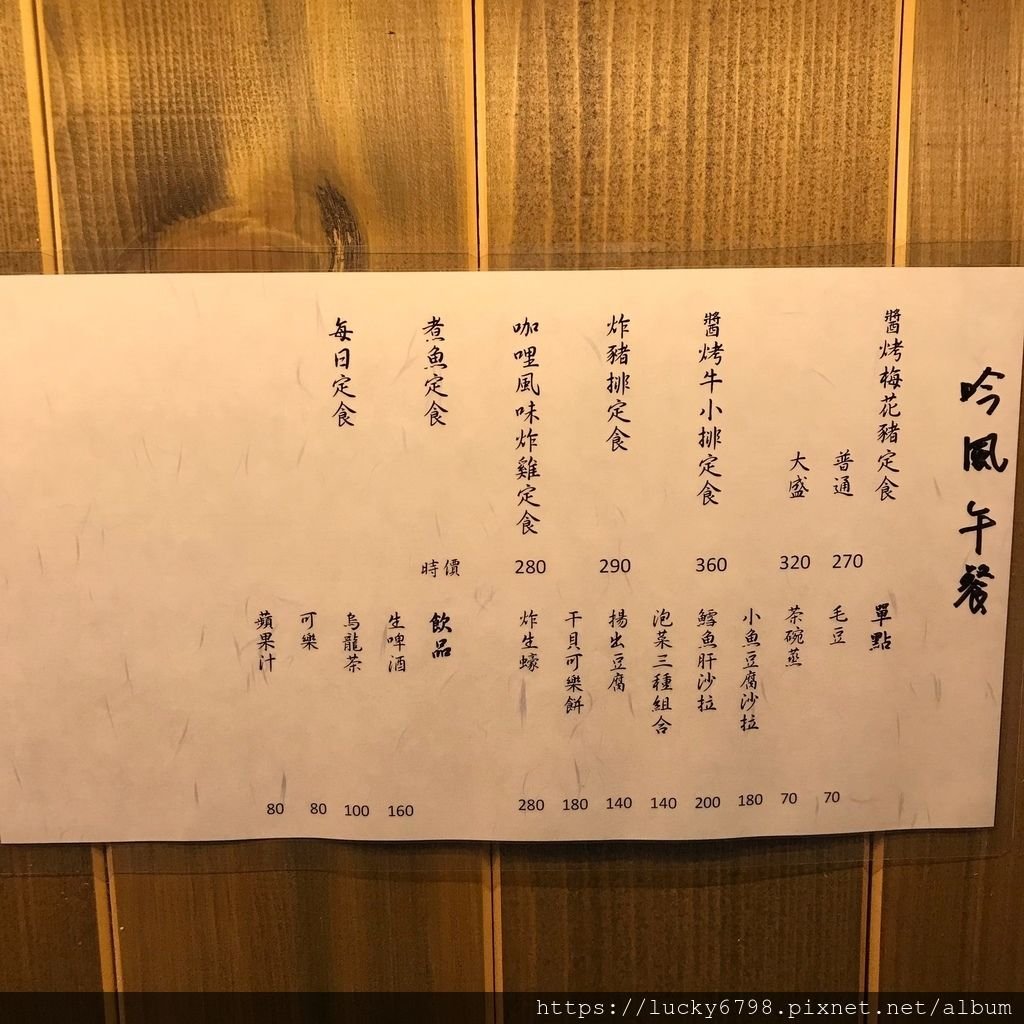 吟風午餐
醬烤梅花豬定食
普通 270
大盛 320
醬烤牛小排定食 360
炸豬排定食 290
咖哩風味炸雞定食 280
煮魚定食 時價
每日定食
單點
毛豆 70
茶碗蒸 70
小魚豆腐沙拉 180
鱈魚肝沙拉 200
泡菜三種組合 140
揚出豆腐 140
干貝可樂餅 180
炸生蠔 280
飲品
生啤酒 160
烏龍茶 100
可樂 80
蘋果汁 80
https://lucky6798.pixnet.net/album